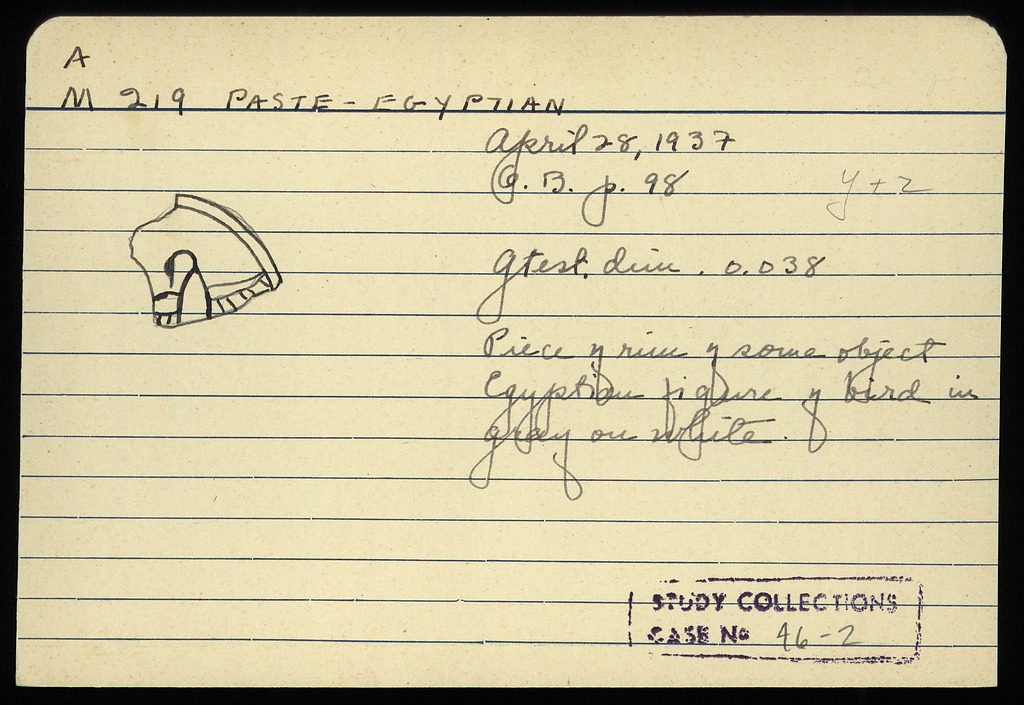 A
M 219 PASTE-EGYPTIAN
April 28, 1937
p. 98
y + z
Gtest. dim. 0.038
Piece of rim of some object
Egyptian figure of bird in
gray on white.
STUDY COLLECTIONS
CASE No 46-2